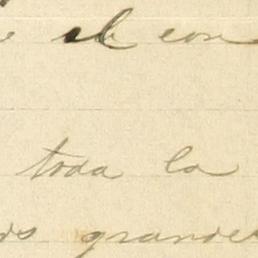 el con
toda la
grandes